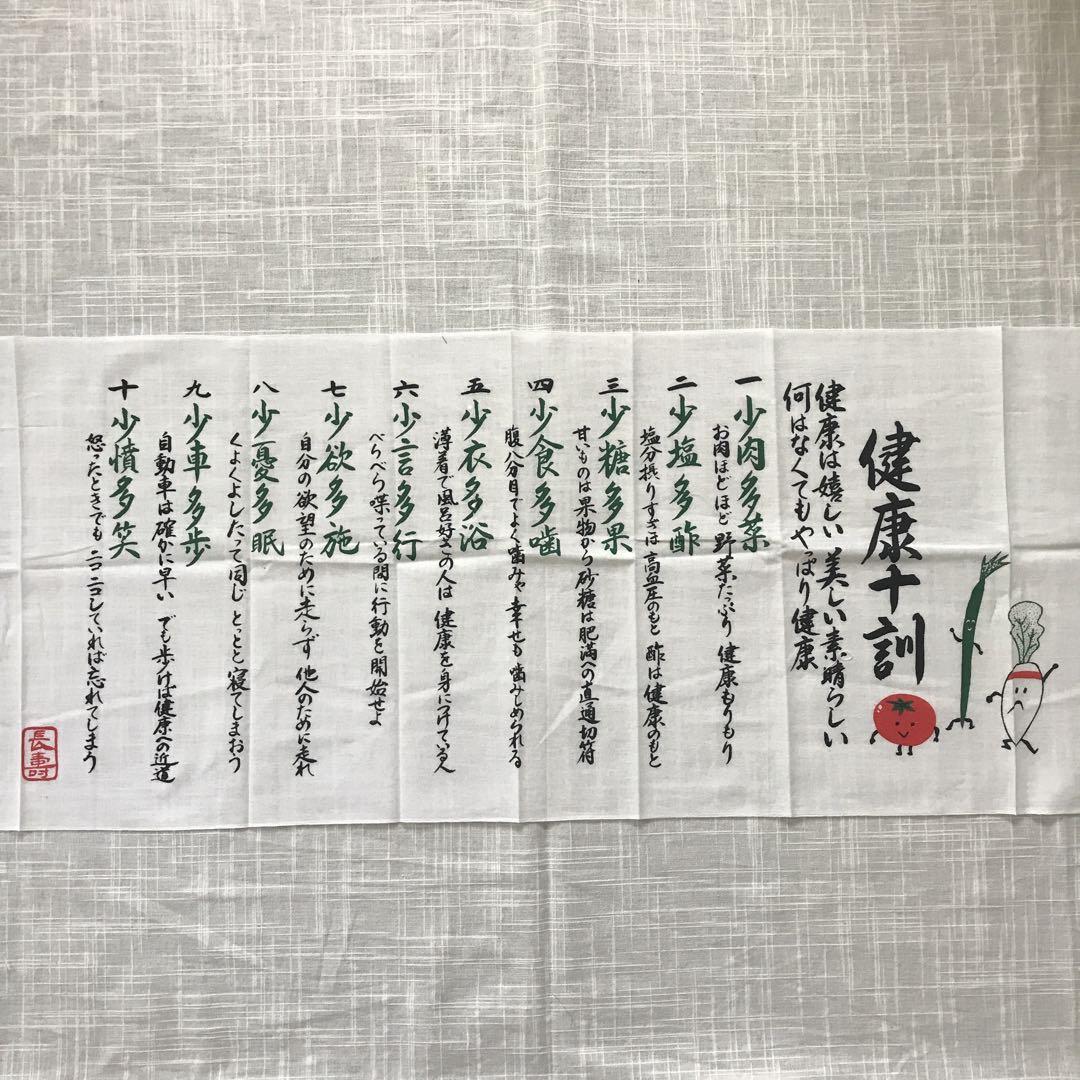 健康十訓
健康は嬉しい 美しい素晴らしい
何はなくてもやっぱり健康
一 少肉多菜
お肉ほどほど 野菜たっぷり 健康もりもり
二 少塩多酢
塩分摂りすぎは 高血圧のもと 酢は健康のもと
三 少糖多果
甘いものは果物から 砂糖は肥満への直通切符
四 少食多噛
腹八分目でよく噛みゃ 幸せも噛みしめられる
五 少衣多浴
薄着で風呂好きの人は 健康を身につけている人
六 少言多行
べらべら喋っている間に行動を開始せよ
七 少欲多施
自分の欲望のために走らず 他人のために走れ
八 少憂多眠
くよくよしたって同じ とっとと寝てしまおう
九 少車多歩
自動車は確かに早い でも歩けば健康への近道
十 少憤多笑
怒ったときでも ニコニコしていれば忘れてしまう
長寿